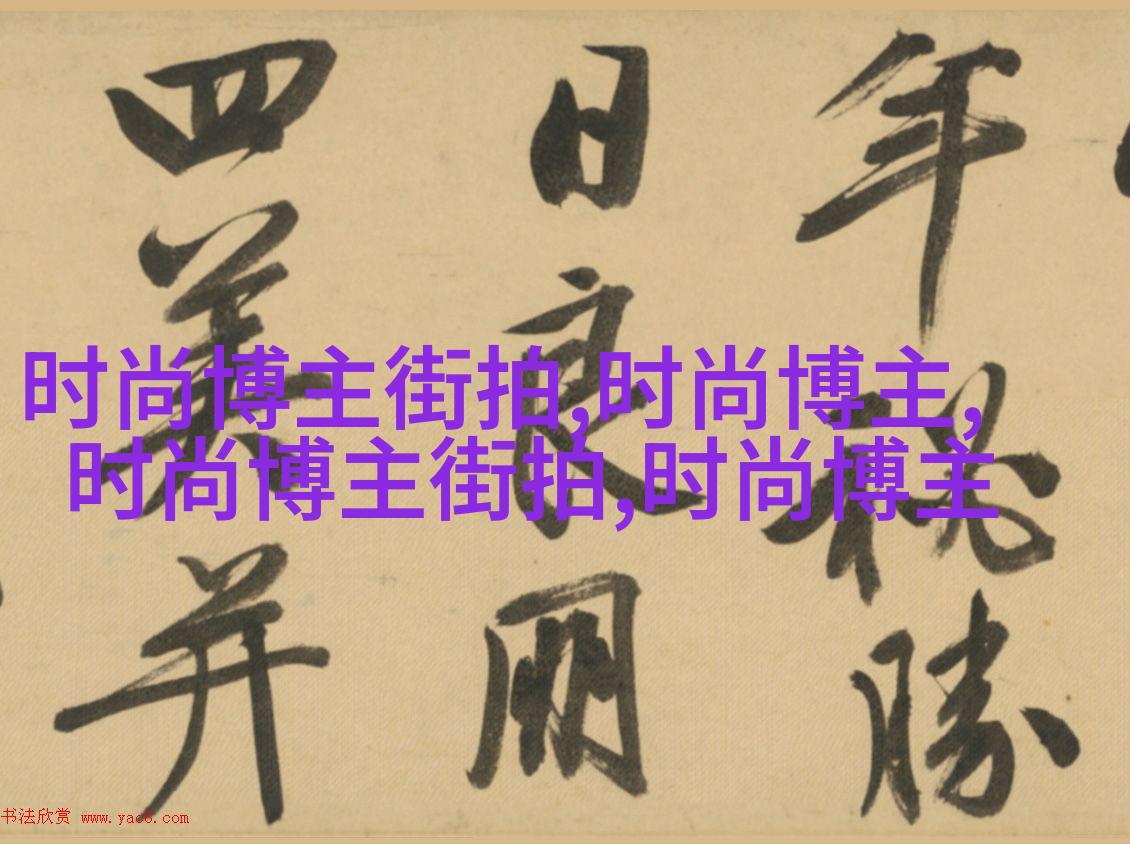 年秘勝
日良朋
四美并
时尚博主街拍,时尚博主,
时尚博主街拍,时尚博主
书法欣赏 www.yac8.com